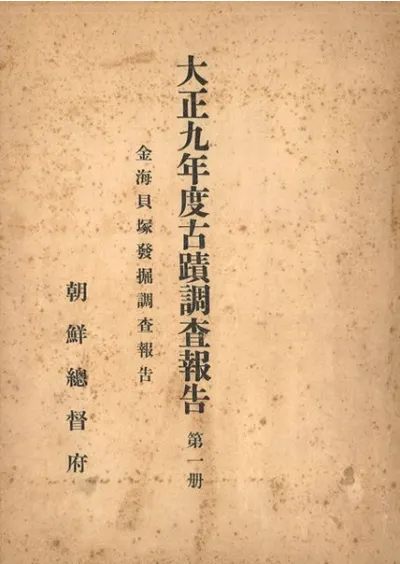 大正九年度古蹟調査報告 第一册
金海貝塚發掘調査報告
朝鮮總督府